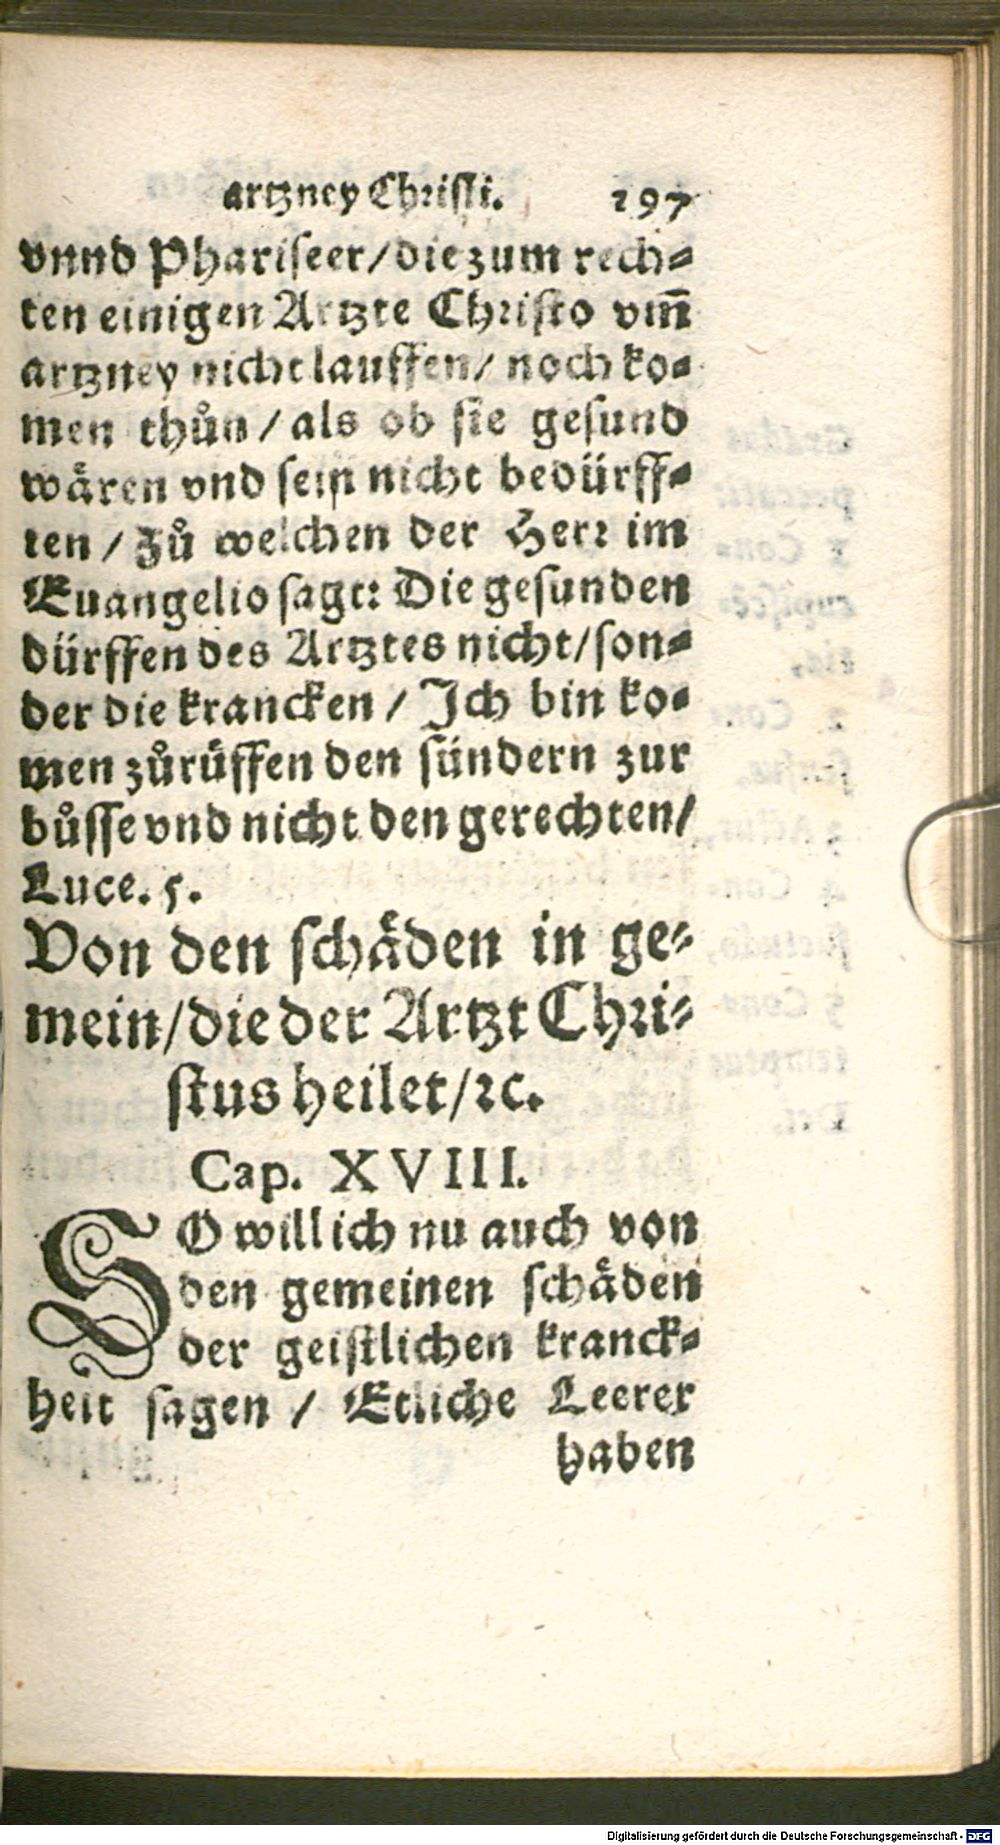 artzney Christi. 197
vnnd Phariseer/die zum rech-
ten einigen Artzte Christo vm̃
artzney nicht lauffen/ noch ko-
men thůn/ als ob sie gesund
wären vnd sein nicht bedürff-
ten/ Zů welchen der Herr im
Euangelio sagt: Die gesunden
dürffen des Artztes nicht/son-
der die krancken/ Ich bin ko-
men zůrůffen den sündern zur
bůsse vnd nicht den gerechten/
Luce. 5.
Von den schäden in ge-
mein/die der Artzt Chri-
stus heilet/ꝛc.
Cap. XVIII.
SO will ich nu auch von
den gemeinen schäden
der geistlichen kranck-
heit sagen/ Etliche Leerer
haben
Digitalisierung gefördert durch die Deutsche Forschungsgemeinschaft - DFG